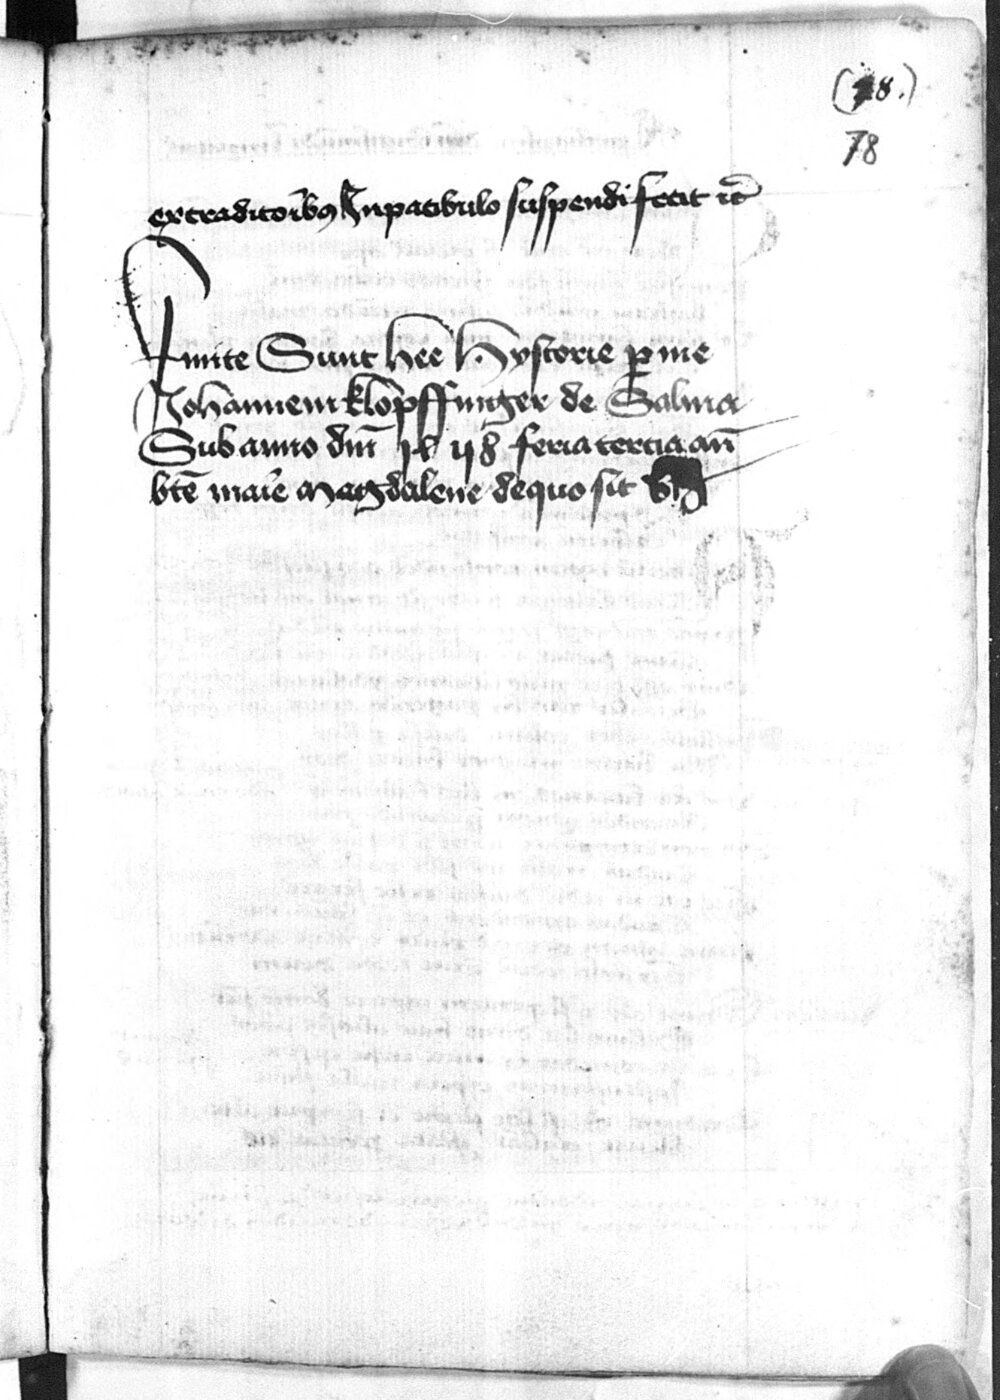 (78.)
78
extraditoribꝯ Inpatibulo suspendi fecit ꝛc̄
Finite Sunt hee Hystorie ꝑ me
Johannem klopffinger de Salina
Sub anno dm̄ feria tercia an̄
btē marie Magdalene dequo sit